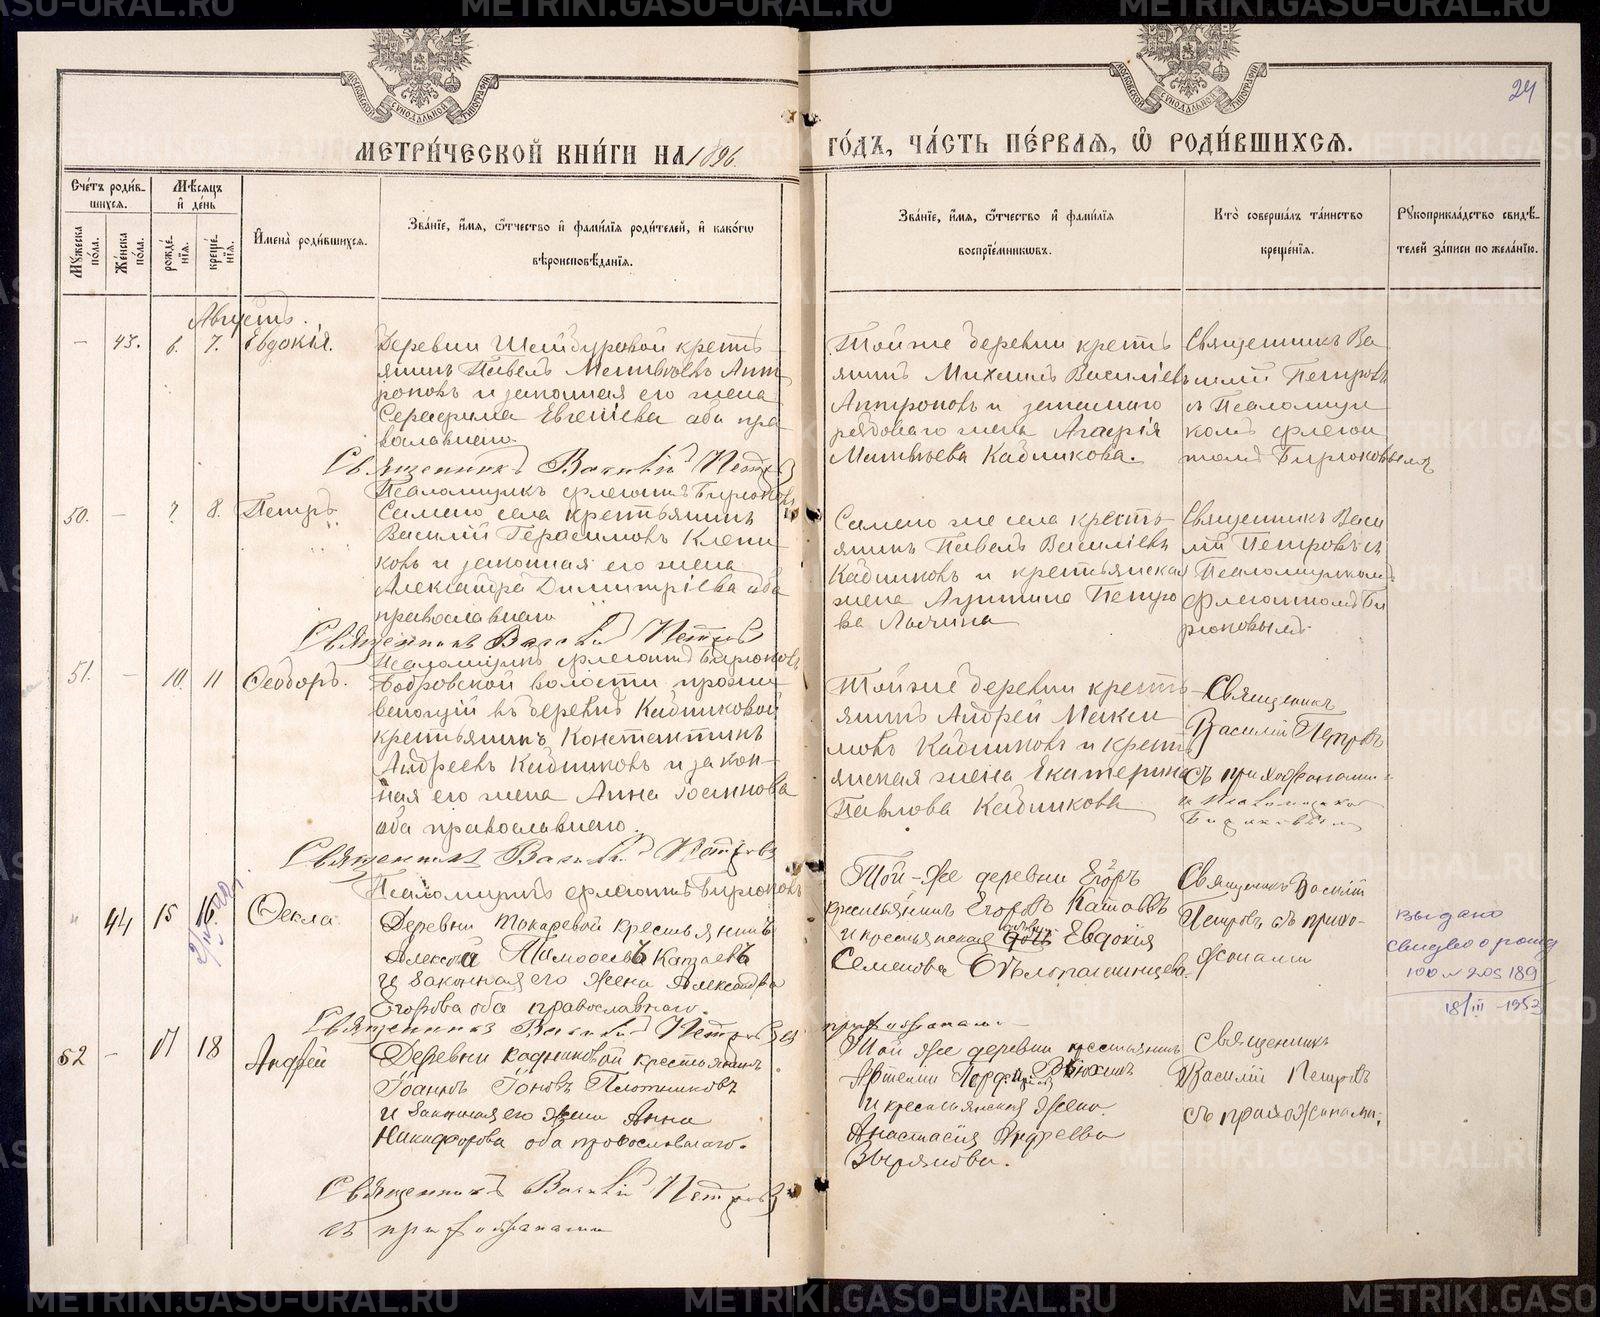 METRIKI.GASO-URAL.RU
24
МЕТРИ́ЧЕСКОЙ КНИ́ГИ НА 1896 ГО́ДЪ, ЧА́СТЬ ПЕ́РВАѦ, Ѡ҆ РОДИ́ВШИХСѦ.
Сче́тъ роди́в-
шихсѧ.
Мѣ́сѧцъ
и҆ де́нь
Мꙋ́жеска по́ла.
Же́нска по́ла.
рожде́-
нїѧ.
креще́-
нїѧ.
И҆мена̀ роди́вшихсѧ.
Зва́нїе, и҆́мѧ, ѻ҆́тчество и҆ фами́лїѧ роди́телей, и҆ како́гѡ
вѣроисповѣ́данїѧ.
Зва́нїе, и҆́мѧ, ѻ҆́тчество и҆ фами́лїѧ
воспрїе́мникѡвъ.
Кто̀ соверша́лъ та́инство
креще́нїѧ.
Рꙋкоприкла́дство свидѣ́-
телей за́писи по жела́нїю.
Августъ.
- 43. 6. 7. Евдокія.
Деревни Шейдуровой кресть
янинъ Павелъ Матвѣевъ Ант
роповъ и законная его жена
Серафима Евгеніева оба пра
вославнаго
Священникъ Василій Петровъ
Псаломщикъ Флегонтъ Бирюковъ
Тойже деревни кресть
янинъ Михаилъ Василіевъ
Антроповъ и запаснаго
рядоваго жена Агафія
Матвѣева Кадникова.
Священникъ Ва
силій Петровъ
съ Псаломщи
комъ Флегон
томъ Бирюковымъ
50. - 7. 8. Петръ
Самаго села крестьянинъ
Василій Герасимовъ Клепи
ковъ и законная его жена
Александра Димитріева оба
православнаго
Священникъ Василій Петровъ
Псаломщикъ Флегонтъ Бирюковъ
Самаго же села кресть-
янинъ Павелъ Василіевъ
Кадниковъ и крестьянская
жена Петро
ва
Священникъ Васи
лій Петровъ съ
Псаломщикомъ
Флегонтомъ Би
рюковымъ
51. - 10. 11 Ѳеодоръ.
Бобровской волости прожи
вающій въ деревнѣ Кадниковой
крестьянинъ Константинъ
Андреевъ Кадниковъ и закон-
ная его жена Анна Іоаннова
оба православнаго.
Священникъ Василій Петровъ
Псаломщикъ Флегонтъ Бирюковъ
Тойже деревни кресть-
янинъ Андрей Макси
мовъ Кадниковъ и кресть
янская жена Екатерина
Павлова Кадникова
Священникъ
Василій Петровъ
съ прихожанами
и Псаломщиком
Бирюковымъ
" 44 15 16 Ѳекла
Деревни Токаревой крестьянинъ
Алексѣй Тимофеевъ Катаевъ
и законная его жена Александра
Егорова оба православнаго.
Священникъ Василій Петровъ съ
прихожанами
Той-же деревни Егоръ
крестьянинъ Егоровъ Катаевъ
и крестьянская Евдокія
Семенова
Священникъ Василій
Петровъ съ прихо-
жанами
выдано
свидво о рожд
ЮЮ № 205189
18/III - 1953
52 - 17 18 Андрей
Деревни Кадниковой крестьянинъ
Іоаннъ Іоновъ Плотниковъ
и законная его жена Анна
Никифорова оба православнаго.
Священникъ Василій Петровъ
съ прихожанами
Той же деревни крестьянинъ
Артемій
и крестьянская жена
Анастасія Андреева
Зырянова.
Священникъ
Василій Петровъ
съ прихожанами.